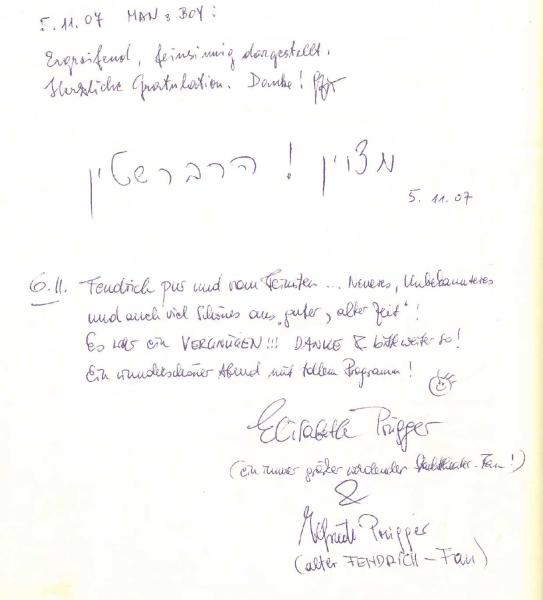 5.11.07 MAN & BOY:
Ergreifend, feinsinnig dargestellt.
Herzliche Gratulation. Danke!
מצוין! הרברשטין
5.11.07
6.11. Fendrich pur und vom Feinsten... Neueres, Unbekannteres
und auch viel Schönes aus "guter, alter Zeit"!
Es war ein VERGNÜGEN!!! DANKE & bitte weiter so!
Ein wunderschöner Abend mit tollem Programm!
Elisabeth Prügger
(ein immer größer werdender Stadttheater-Fan!)
&
Elfriede Prügger
(alter FENDRICH-Fan)